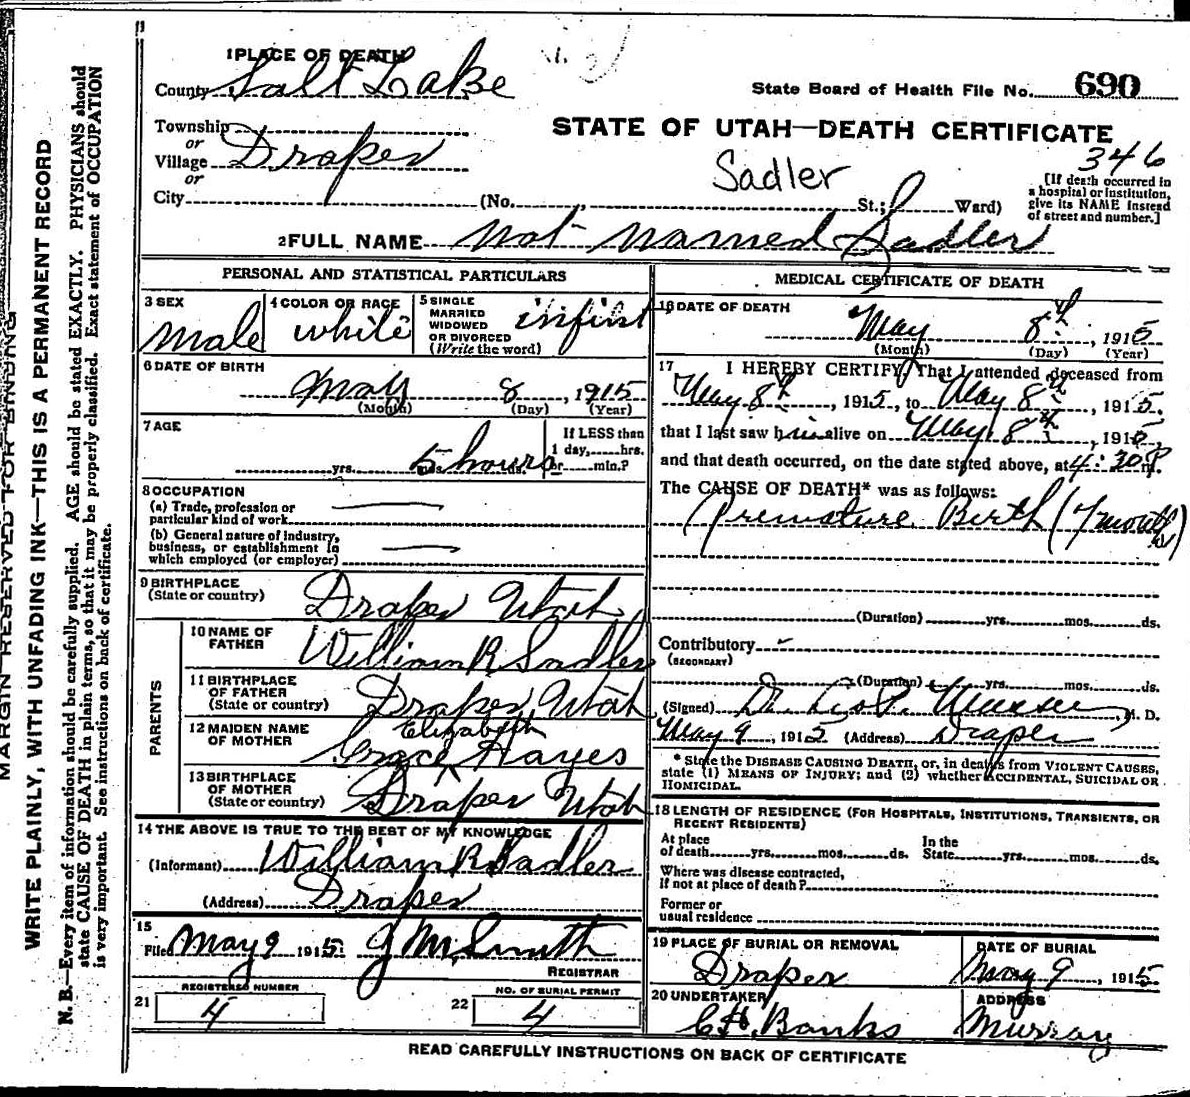 1 PLACE OF DEATH
County Salt Lake
State Board of Health File No. 690
STATE OF UTAH—DEATH CERTIFICATE
346
Township
or
Village Draper
or
City (No. , St.; Ward)
Sadler
[If death occurred in
a hospital or institution,
give its NAME instead
of street and number.]
2 FULL NAME not named Sadler
PERSONAL AND STATISTICAL PARTICULARS
3 SEX
Male
4 COLOR OR RACE
white
5 SINGLE
MARRIED
WIDOWED
OR DIVORCED
(Write the word)
infint
6 DATE OF BIRTH
May 8, 1915
(Month) (Day) (Year)
7 AGE
yrs. 5 hours
If LESS than
1 day, hrs.
or min.?
8 OCCUPATION
(a) Trade, profession or
particular kind of work
(b) General nature of industry,
business, or establishment in
which employed (or employer)
9 BIRTHPLACE
(State or country)
Draper Utah
PARENTS
10 NAME OF
FATHER
William R Sadler
11 BIRTHPLACE
OF FATHER
(State or country)
Draper Utah
12 MAIDEN NAME
OF MOTHER
Elizabeth
Grace Hayes
13 BIRTHPLACE
OF MOTHER
(State or country)
Draper Utah
14 THE ABOVE IS TRUE TO THE BEST OF MY KNOWLEDGE
(Informant) William R Sadler
(Address) Draper
15
Filed May 9 1915. J M. Smith
REGISTRAR
REGISTERED NUMBER
21 4
NO. OF BURIAL PERMIT
22 4
MEDICAL CERTIFICATE OF DEATH
16 DATE OF DEATH
May 8th, 1915
(Month) (Day) (Year)
17 I HEREBY CERTIFY, That I attended deceased from
May 8th, 1915, to May 8th, 1915.
that I last saw him alive on May 8th, 1915,
and that death occurred, on the date stated above, at 4:30 P m.
The CAUSE OF DEATH* was as follows:
Premature Birth (7 months)
(Duration) yrs. mos. ds.
Contributory -
(SECONDARY)
(Duration) yrs. mos. ds.
(Signed) Dr. , M. D.
May 9, 1915 (Address) Draper
* State the DISEASE CAUSING DEATH, or, in deaths from VIOLENT CAUSES,
state (1) MEANS OF INJURY; and (2) whether ACCIDENTAL, SUICIDAL OR
HOMICIDAL.
18 LENGTH OF RESIDENCE (FOR HOSPITALS, INSTITUTIONS, TRANSIENTS, OR
RECENT RESIDENTS)
At place In the
of death yrs. mos. ds. State yrs. mos. ds.
Where was disease contracted,
if not at place of death?
Former or
usual residence
19 PLACE OF BURIAL OR REMOVAL
Draper
DATE OF BURIAL
May 9, 1915
20 UNDERTAKER
Banks
ADDRESS
Murray
READ CAREFULLY INSTRUCTIONS ON BACK OF CERTIFICATE
MARGIN RESERVED FOR BINDING
WRITE PLAINLY, WITH UNFADING INK—THIS IS A PERMANENT RECORD
N. B.—Every item of information should be carefully supplied. AGE should be stated EXACTLY. PHYSICIANS should
state CAUSE OF DEATH in plain terms, so that it may be properly classified. Exact statement of OCCUPATION
is very important. See instructions on back of certificate.